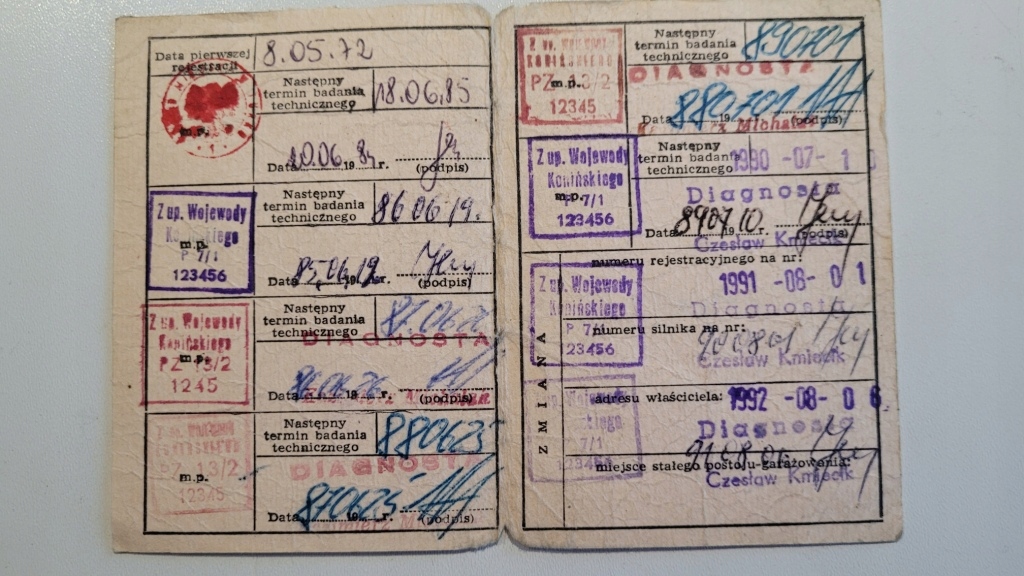 Data pierwszej
rejestracji
8.05.72
m.p.
Następny
termin badania
technicznego
18.06.85
Data 20.06. 19 84 r.
(podpis)
Z up. Wojewody
Konińskiego
m.p.
P 7/1
123456
Następny
termin badania
technicznego
86 06 19.
Data 85.06.19 19 r.
(podpis)
Z up. Wojewody
Konińskiego
m.p.
PZ 13/2
1245
Następny
termin badania
technicznego
DIAGNOSTA
Data 86.06.26 19 r.
(podpis)
m.p.
PZ 13/2
12345
Następny
termin badania
technicznego
880625
DIAGNOSTA
Data 870625 19
(podpis)
m.p.
PZ 13/2
12345
Następny
termin badania
technicznego
890701
DIAGNOSTA
Data 880701 19
(podpis)
Z up. Wojewody
Konińskiego
m.p.
P 7/1
123456
Następny
termin badania
technicznego
1990 -07- 1
Diagnosta
Data 890710. 19 r.
(podpis)
Czesław Kmiecik
ZMIANA
numeru rejestracyjnego na nr:
1991 -08- 0 1
Z up. Wojewody
Konińskiego
P 7/
23456
Diagnosta
numeru silnika na nr:
900801
Czesław Kmiecik
adresu właściciela:
1992 -08- 0 6.
7/1
Diagnosta
910806
miejsce stałego postoju-garażowania:
Czesław Kmiecik